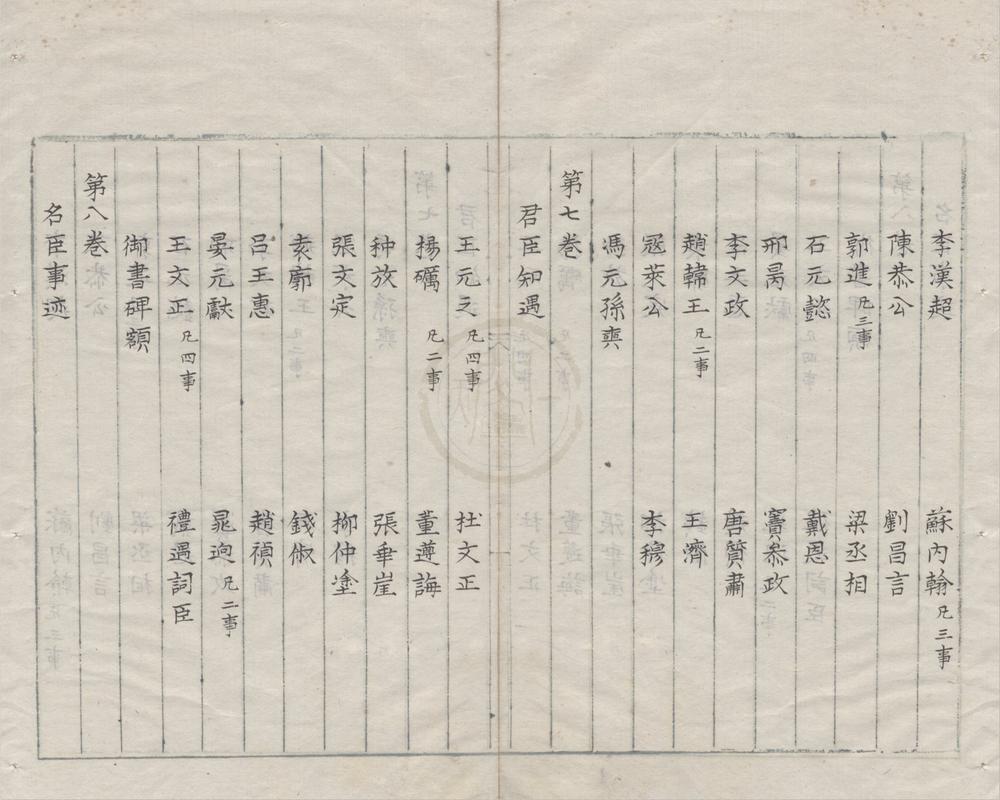 李漢超　蘇內翰凡三事
陳恭公　劉昌言
郭進凡三事　梁丞相
石元懿　戴恩
邢昺　竇叅政
李文政　唐質肅
趙韓王凡二事　王濟
冦萊公　李穆
馮元孫奭
第七卷
君臣知遇
王元之凡四事　杜文正
楊礪凡二事　董遵誨
种放　張乖崖
張文定　柳仲塗
袁廓　錢俶
呂王惠　趙禎
晏元獻　晁逈凡二事
王文正凡四事　禮遇詞臣
御書碑額
第八卷
名臣事迹